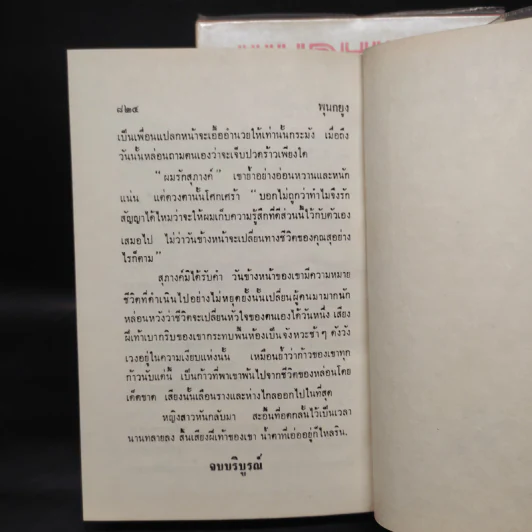 ๘๒๔ พุนกยูง
เป็นเพื่อนแปลกหน้าจะเอื้ออำนวยให้เท่านั้นกระมัง เมื่อถึง
วันนั้นหล่อนถามตนเองว่าจะเจ็บปวดร้าวเพียงใด
"ผมรักสุภางค์" เขาย้ำอย่างอ่อนหวานและหนัก
แน่น แต่ดวงตานั้นโศกเศร้า "บอกไม่ถูกว่าทำไมจึงรัก
สัญญาได้ไหมว่าจะให้ผมเก็บความรู้สึกที่ดีส่วนนี้ไว้กับตัวเอง
เสมอไป ไม่ว่าวันข้างหน้าจะเปลี่ยนทางชีวิตของคุณสุอย่าง
ไรก็ตาม"
สุภางค์มิได้รับคำ วันข้างหน้าของเขามีความหมาย
ชีวิตที่ดำเนินไปอย่างไม่หยุดยั้งนั้นเปลี่ยนผู้คนมามากนัก
หล่อนหวังว่าชีวิตจะเปลี่ยนหัวใจของตนเองได้วันหนึ่ง เสียง
ฝีเท้าเบากริบของเขากระทบพื้นห้องเป็นจังหวะช้าๆ ดังวัง
เวงอยู่ในความเงียบแห่งนั้น เหมือนย้ำว่าก้าวของเขาทุก
ก้าวนับแต่นี้ เป็นก้าวที่พาเขาพ้นไปจากชีวิตของหล่อนโดย
เด็ดขาด เสียงนั้นเลือนรางและห่างไกลออกไปในที่สุด
หญิงสาวหันกลับมา สะอื้นที่อดกลั้นไว้เป็นเวลา
นานทลายลง สิ้นเสียงฝีเท้าของเขา น้ำตาที่เอ่ออยู่ก็ไหลริน.
จบบริบูรณ์